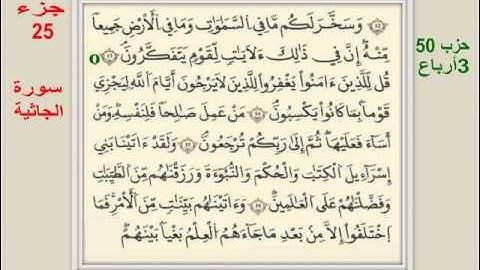 حزب 50
3أرباع
وَسَخَّرَ لَكُم مَّا فِي السَّمَٰوَٰتِ وَمَا فِي الْأَرْضِ جَمِيعاً
مِّنْهُ إِنَّ فِي ذَٰلِكَ ءَلَايَٰتٍ لِّقَوْمٍ يَتَفَكَّرُونَ
قُل لِّلَّذِينَ ءَامَنُوا يَغْفِرُوا لِلَّذِينَ لَا يَرْجُونَ أَيَّامَ اللَّهِ لِيَجْزِيَ
قَوْماً بِمَا كَانُوا يَكْسِبُونَ مَنْ عَمِلَ صَٰلِحاً فَلِنَفْسِهِ وَمَنْ
أَسَآءَ فَعَلَيْهَا ثُمَّ إِلَىٰ رَبِّكُمْ تُرْجَعُونَ وَلَقَدْ ءَاتَيْنَا بَنِي
إِسْرَآءِيلَ الْكِتَٰبَ وَالْحُكْمَ وَالنُّبُوَّةَ وَرَزَقْنَٰهُم مِّنَ الطَّيِّبَٰتِ
وَفَضَّلْنَٰهُمْ عَلَى الْعَٰلَمِينَ وَءَاتَيْنَٰهُم بَيِّنَٰتٍ مِّنَ الْأَمْرِ فَمَا
اخْتَلَفُوا إِلَّا مِن بَعْدِ مَا جَآءَهُمُ الْعِلْمُ بَغْياً بَيْنَهُمْ
جزء
25
سورة
الجاثية